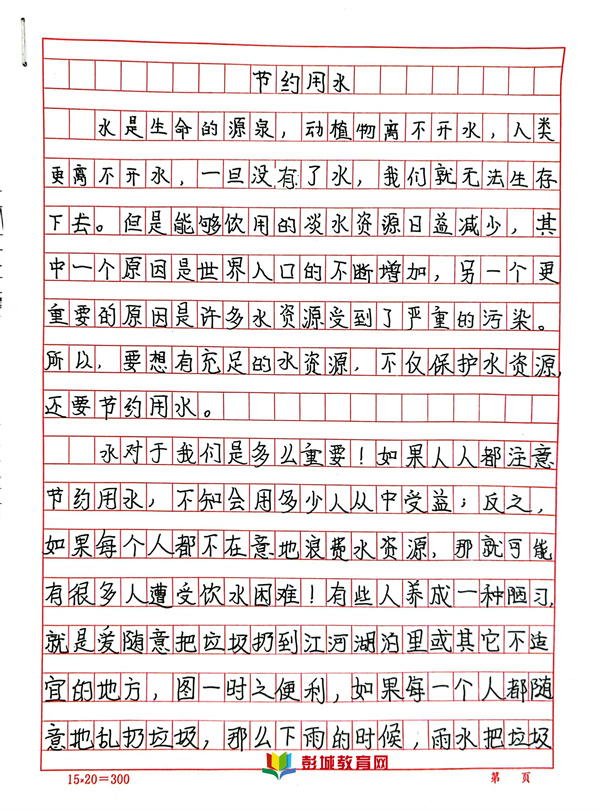 节约用水
水是生命的源泉，动植物离不开水，人类
更离不开水，一旦没有了水，我们就无法生存
下去。但是能够饮用的淡水资源日益减少，其
中一个原因是世界人口的不断增加，另一个更
重要的原因是许多水资源受到了严重的污染。
所以，要想有充足的水资源，不仅保护水资源，
还要节约用水。
水对于我们是多么重要！如果人人都注意
节约用水，不知会用多少人从中受益；反之，
如果每个人都不在意地浪费水资源，那就可能
有很多人遭受饮水困难！有些人养成一种陋习，
就是爱随意把垃圾扔到江河湖泊里或其它不适
宜的地方，图一时之便利，如果每一个人都随
意地乱扔垃圾，那么下雨的时候，雨水把垃圾
彭城教育网
15×20=300 第 页